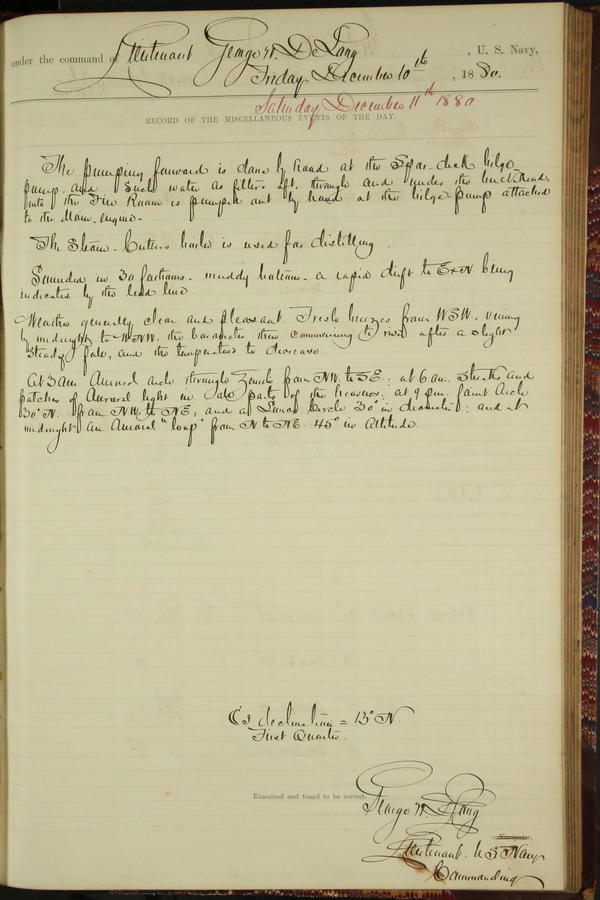 under the command of Lieutenant George W. De Long , U. S. Navy,
Friday December 10th , 1880.
Saturday December 11th 1880
RECORD OF THE MISCELLANEOUS EVENTS OF THE DAY.
The pumping forward is done by hand at the Spar-deck bilge
pump, and such water as filters aft, through and under the bulkhead,
into the Fire Room is pumped out by hand at the bilge pump attached
to the Main engine.
The Steam-Cutters boiler is used for distilling.
Sounded in 30 fathoms - muddy bottom - a rapid drift to ExN being
indicated by the lead line
Weather generally clear and pleasant. Fresh breezes from WSW. veering
by midnight to WNW. the barometer then commencing to rise after a slight
steady fall, and the temperature to decrease.
At 3 a.m. Auroral arch through Zenith from NW to SE: at 6 a.m. streaks and
patches of Auroral light in all parts of the heavens: at 9 p.m. faint Arch
30° N. from NW to NE, and a Lunar Circle 30° in diameter: and at
midnight an Auroral "loop" from N to NE. 45° in Altitude.
declination = 13° N
First Quarter.
Examined and found to be correct.
George W. De Long
Navigator.
Lieutenant. U S Navy
Commanding